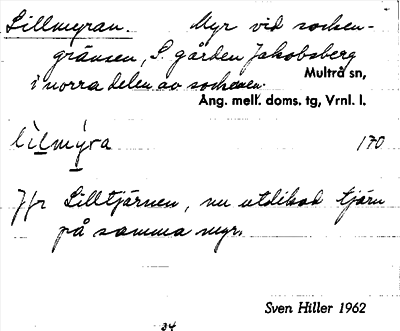 Lillmyran. Myr vid socken-
gränsen, S. gården Jakobsberg
i norra delen av socknen.
Multrå sn,
Ång. mell. doms. tg, Vrnl. l.
lìlmýra 170
Jfr Lilltjärnen, nu utdikad tjärn
på samma myr.
Sven Hiller 1962
34